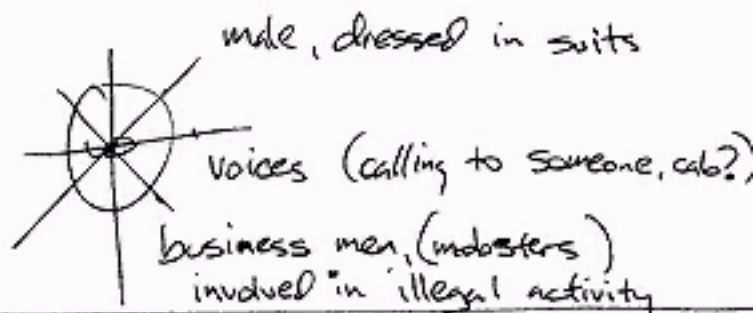 male, dressed in suits
voices (calling to someone, cab?)
business men, (mobsters)
involved in illegal activity